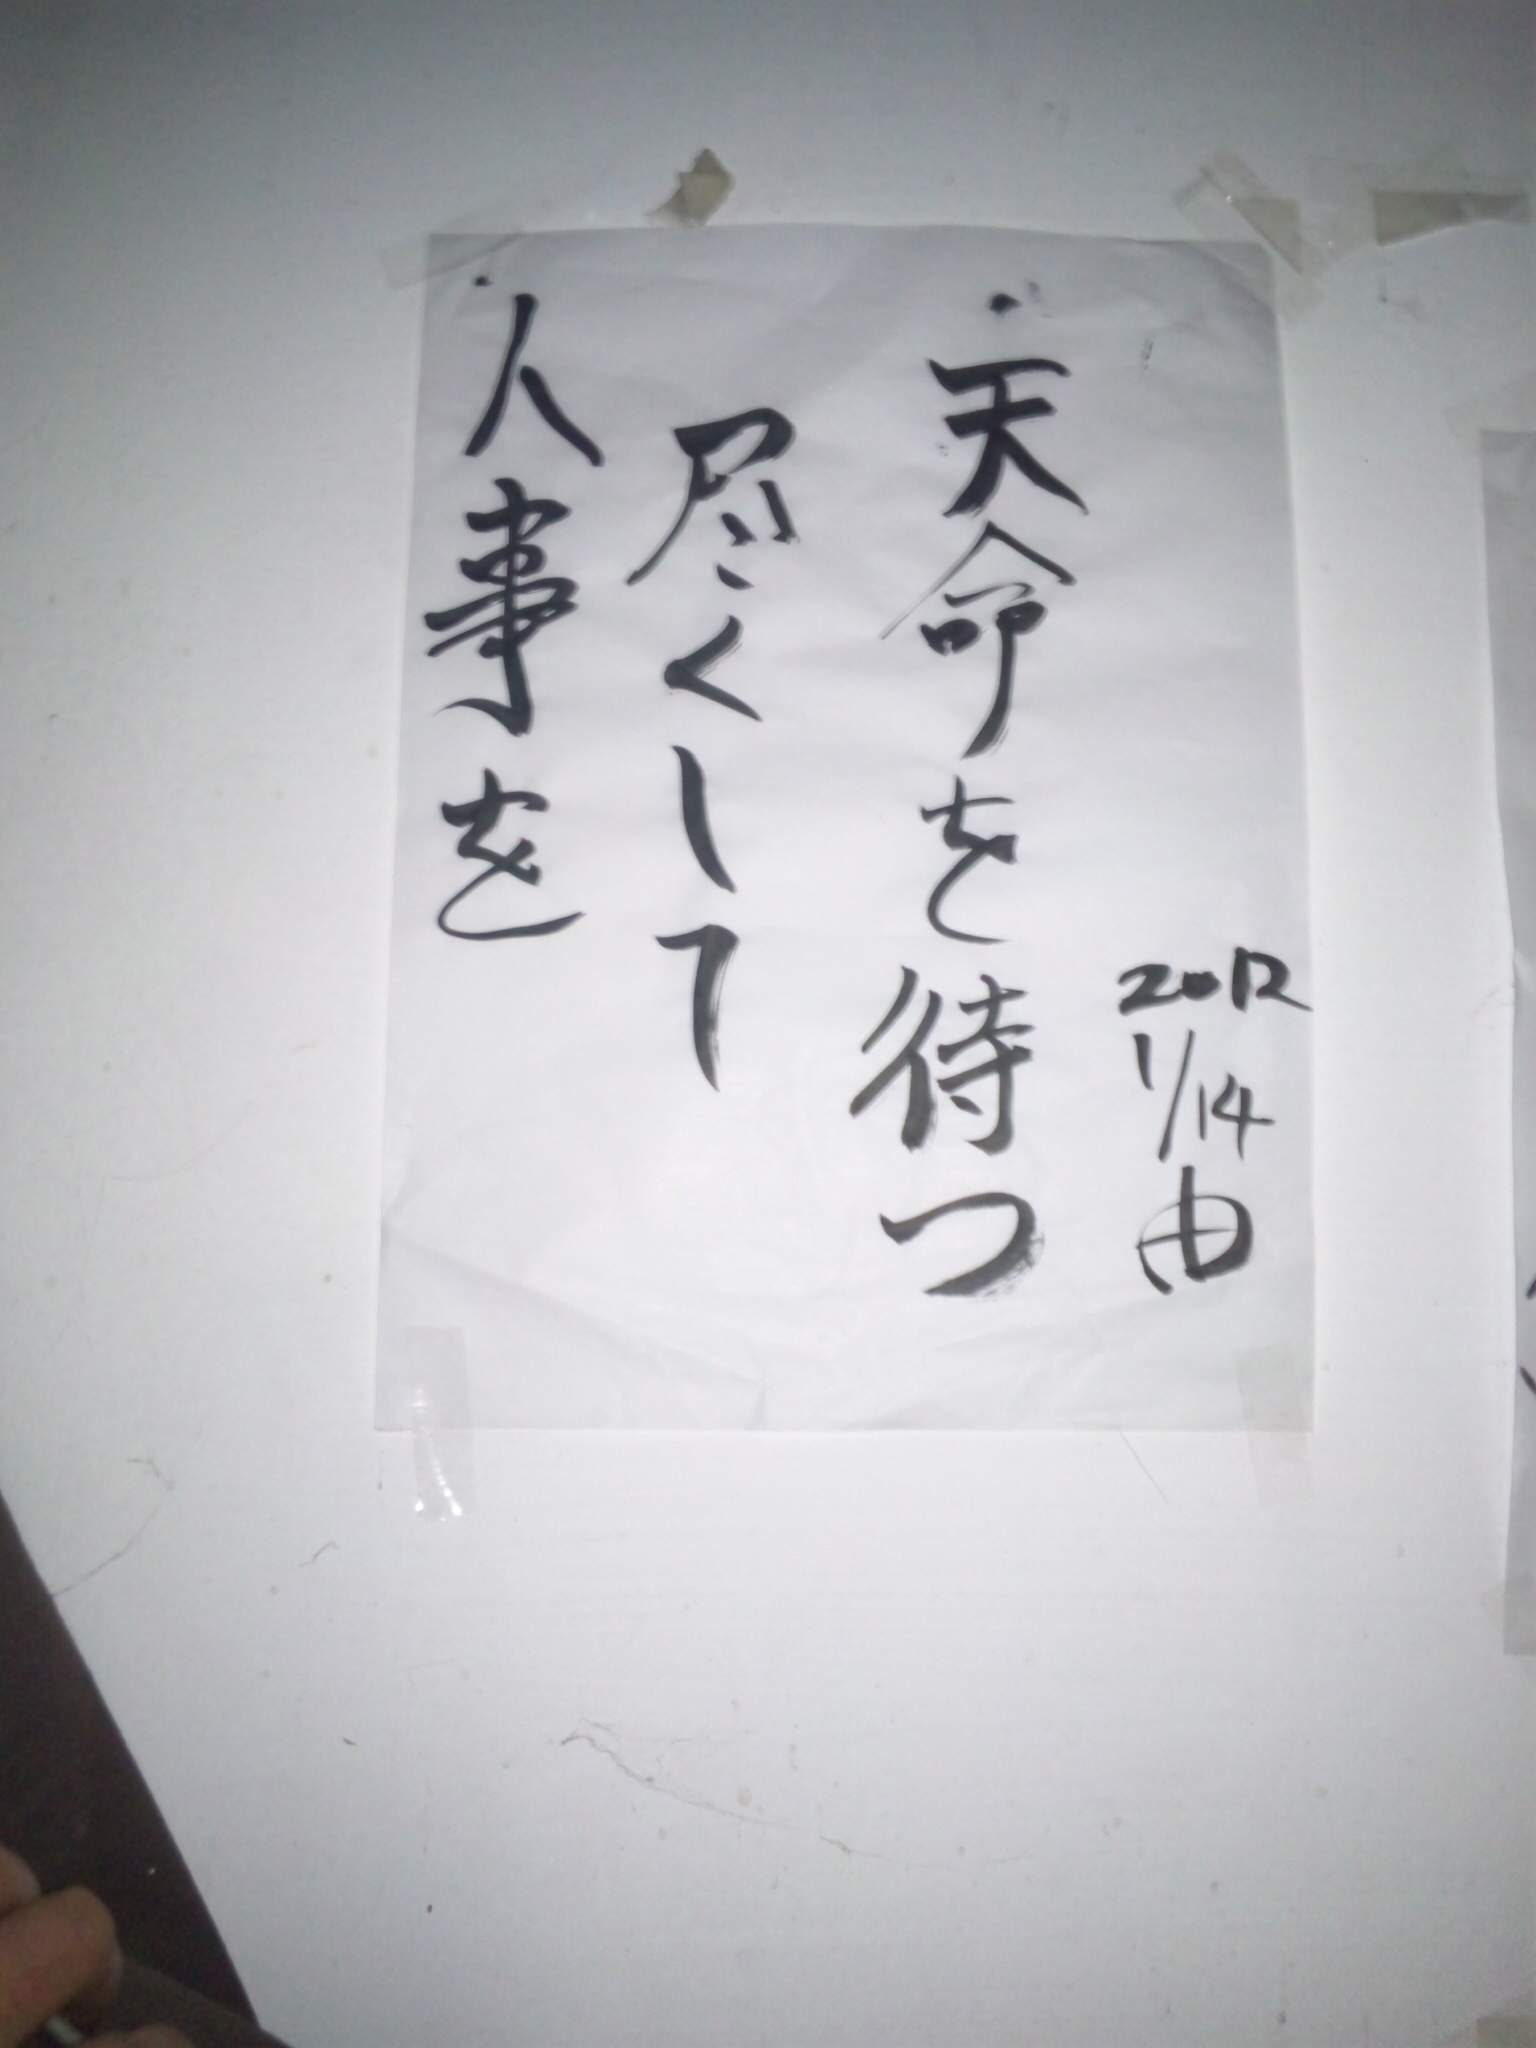 ・人事を
尽くして
・天命を待つ
2012
1/14
由